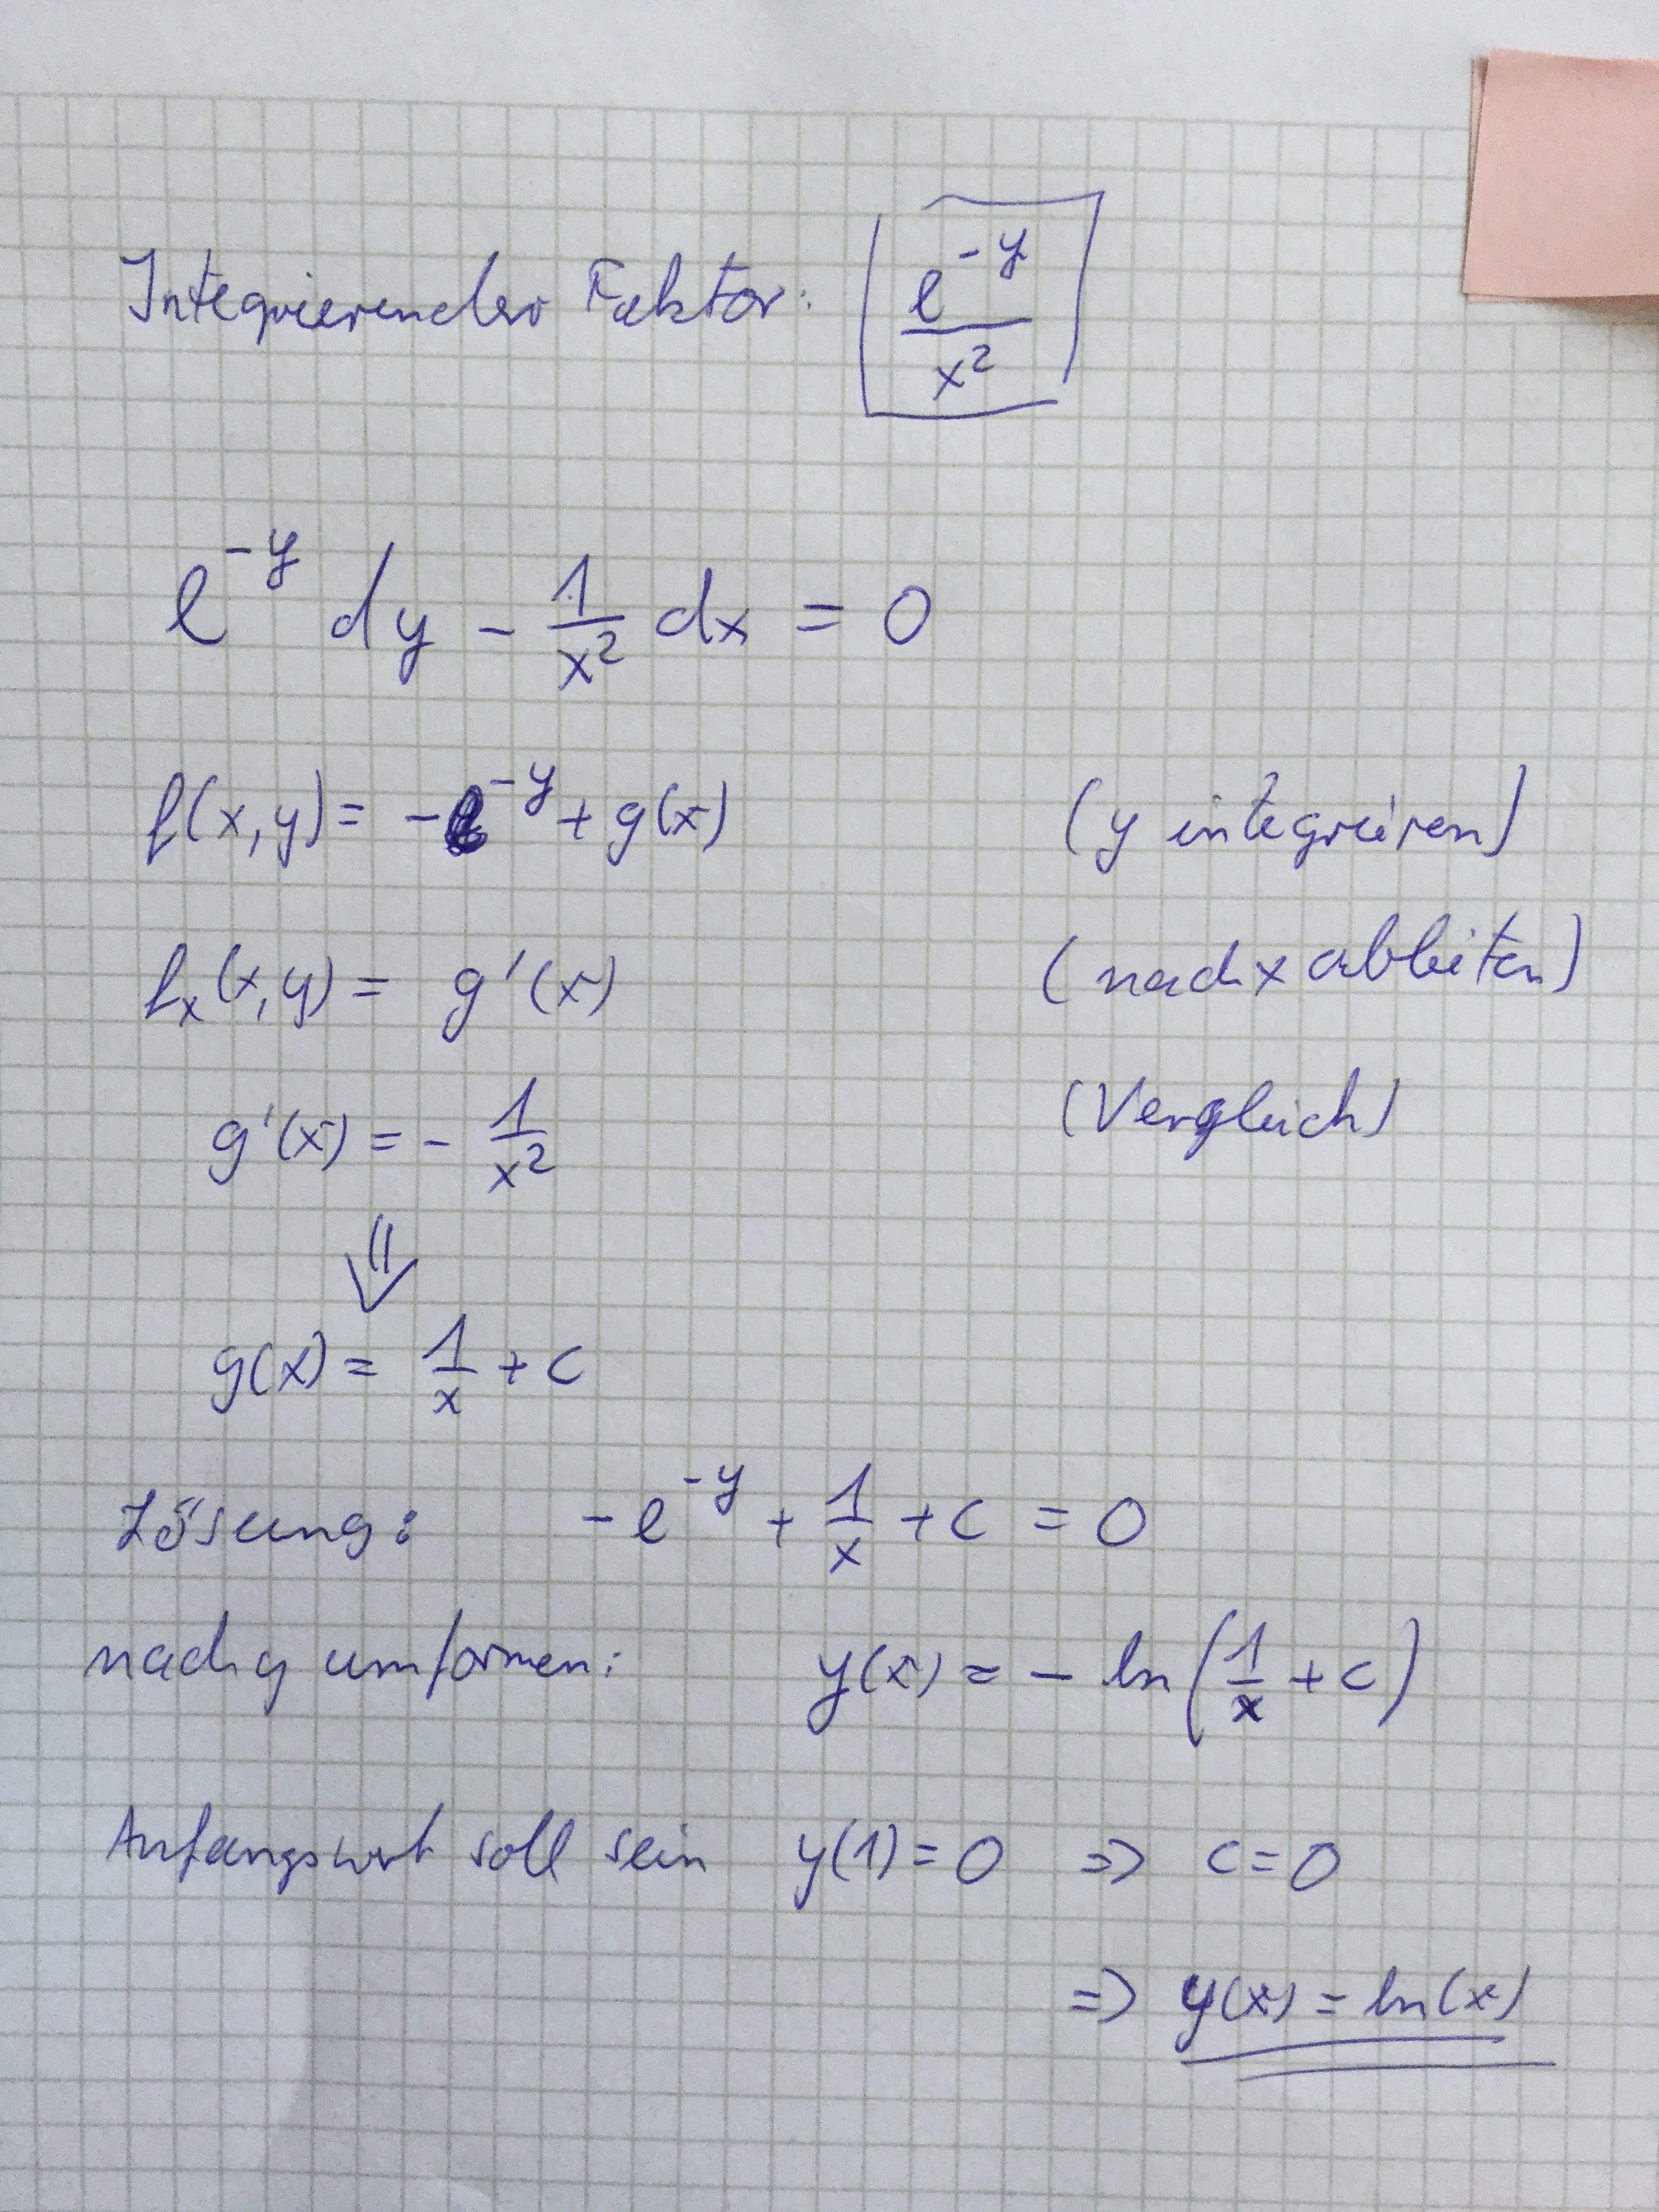 Integrierender Faktor: e^{-y}/x²
e^{-y} dy - 1/x² dx = 0
f(x,y) = -e^{-y} + g(x) (y integrieren)
f_x(x,y) = g'(x) (nach x ableiten)
g'(x) = - 1/x² (Vergleich)
⇓
g(x) = 1/x + c
Lösung: -e^{-y} + 1/x + c = 0
nach y umformen: y(x) = - ln(1/x + c)
Anfangswert soll sein y(1) = 0 ⇒ c = 0
⇒ y(x) = ln(x)